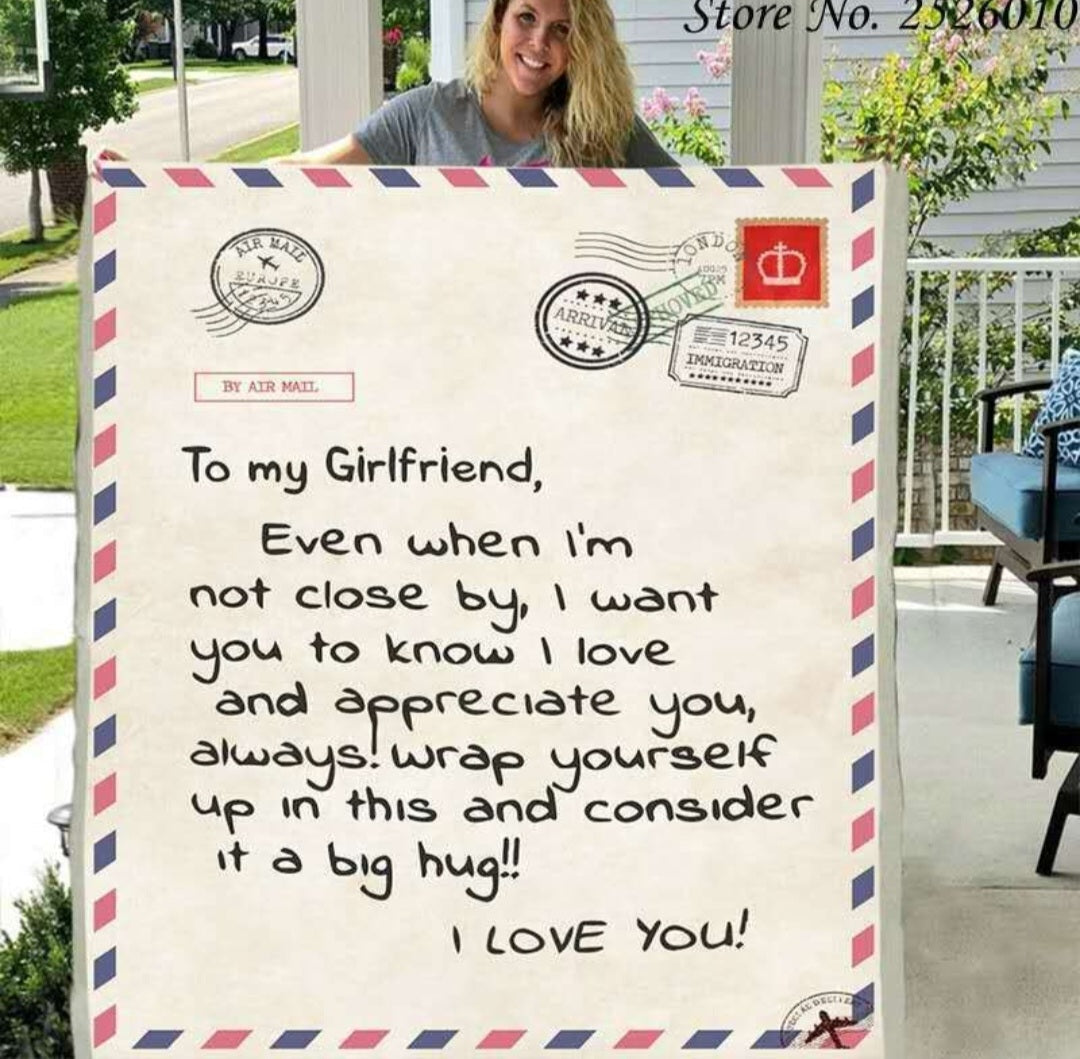 Store No. 2326010
AIR MAIL
EUROPE
LONDO
ARRIVAL
12345
IMMIGRATION
BY AIR MAIL
To my Girlfriend,
Even when I'm
not close by, I want
you to know I love
and appreciate you,
always! wrap yourself
up in this and consider
it a big hug!!
I LOVE YOU!